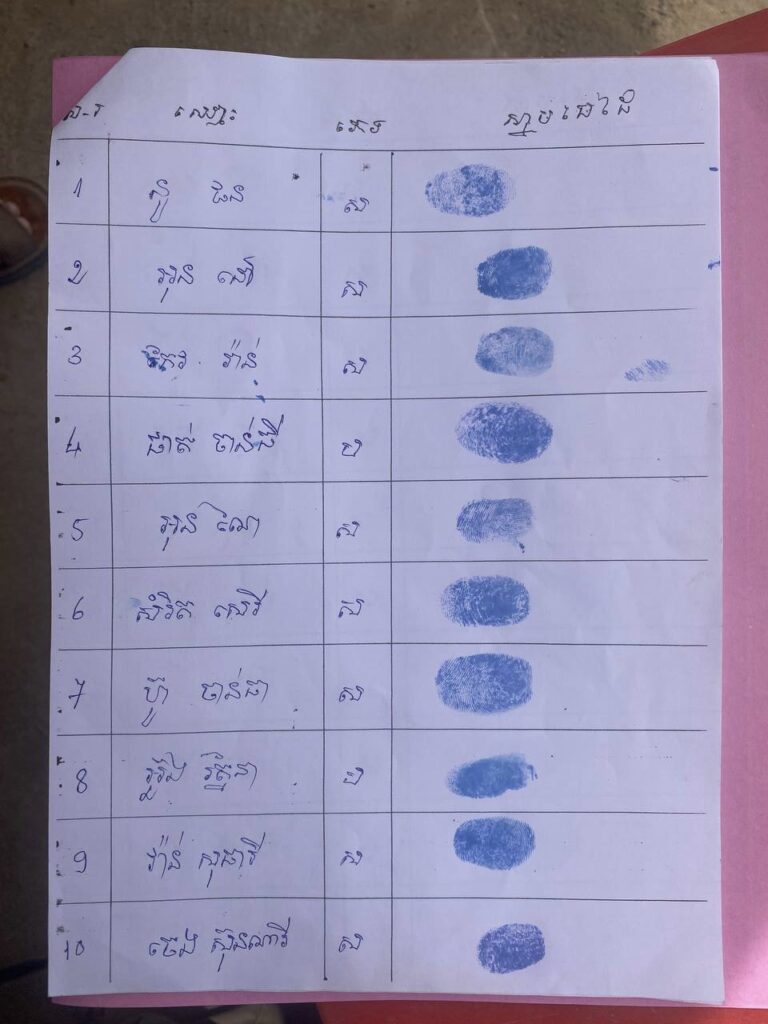 ល-រ ឈ្មោះ ភេទ ស្នាមមេដៃ
1 នូ ផន ស
2 អុន ស
3 កែវ វ៉ាន់ ស
4 ផាត់ ចាន់ធី ប
5 អុន ណៃ ស
6 សំរិត សេរី ស
7 ប៊ូ ចាន់ធា ស
8 ប
9 វ៉ាន់ សុផារី ស
10 ចេង ស៊ុនណារី ស